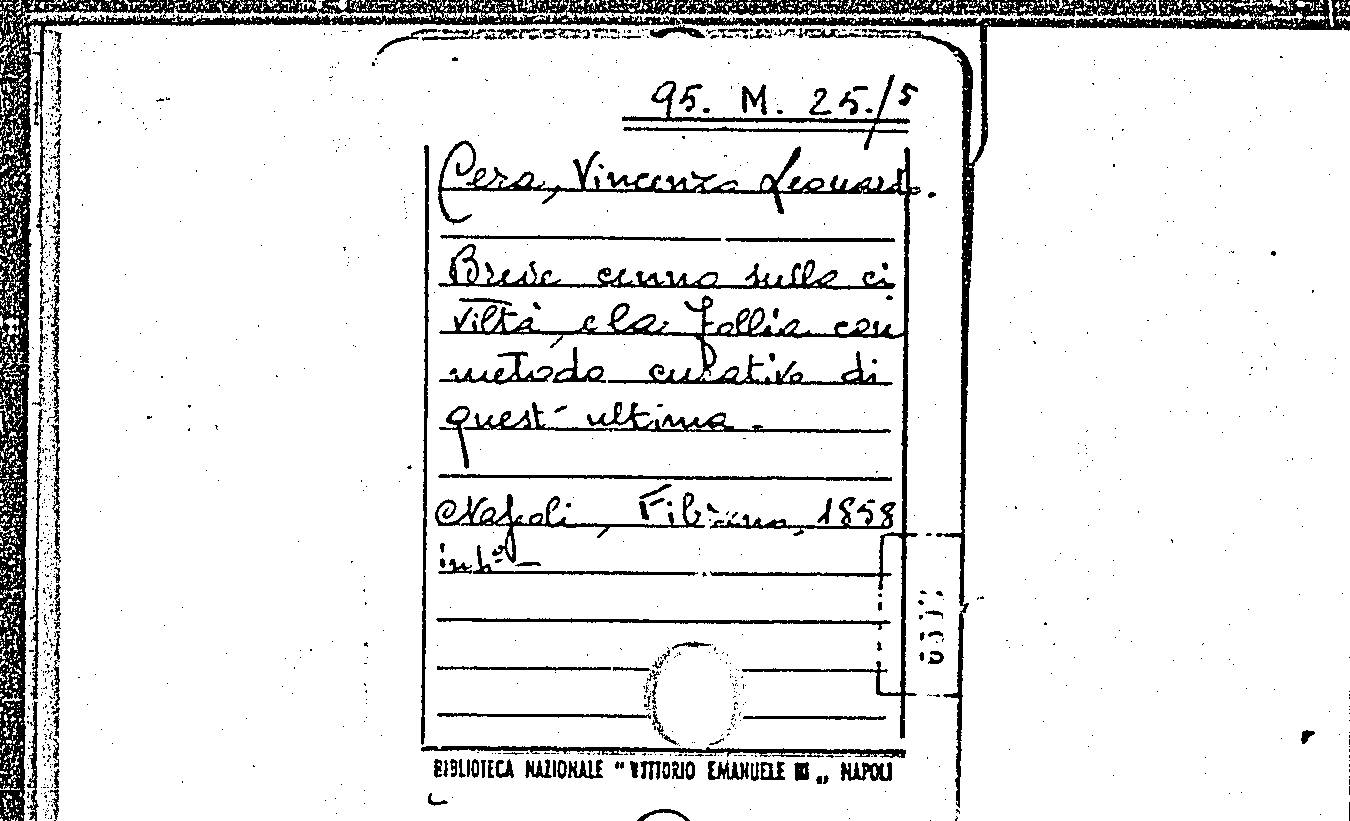 95. M. 25./5
Cera, Vincenzo Leonardo.
Breve cenno sulla ci
viltà, e la follia con
metodo curativo di
quest' ultima.
Napoli, Fibreno, 1858
in 4º –
BIBLIOTECA NAZIONALE " VITTORIO EMANUELE III „ NAPOLI